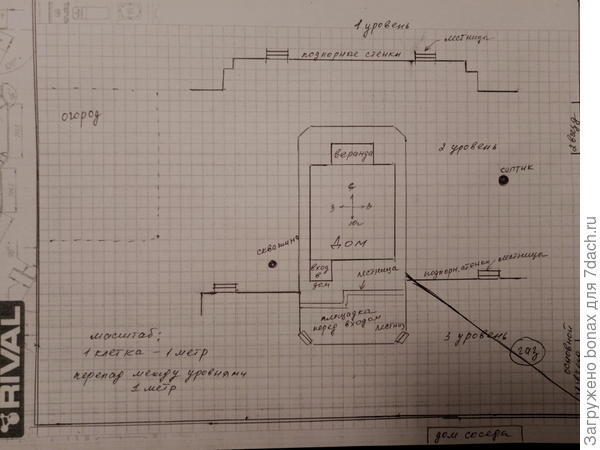 1 уровень
лестница
подпорные стенки
огород
2 вход
веранда
2 уровень
септик
С
З
В
Ю
Дом
скважина
вход
в
дом
лестница
подпорн. стенки
лестница
площадка
перед входом
лестниц
3 уровень
газ
основной
масштаб:
1 клетка - 1 метр
перепад между уровнями
1 метр
дом соседа
RIVAL
Загружено bonax для 7dach.ru